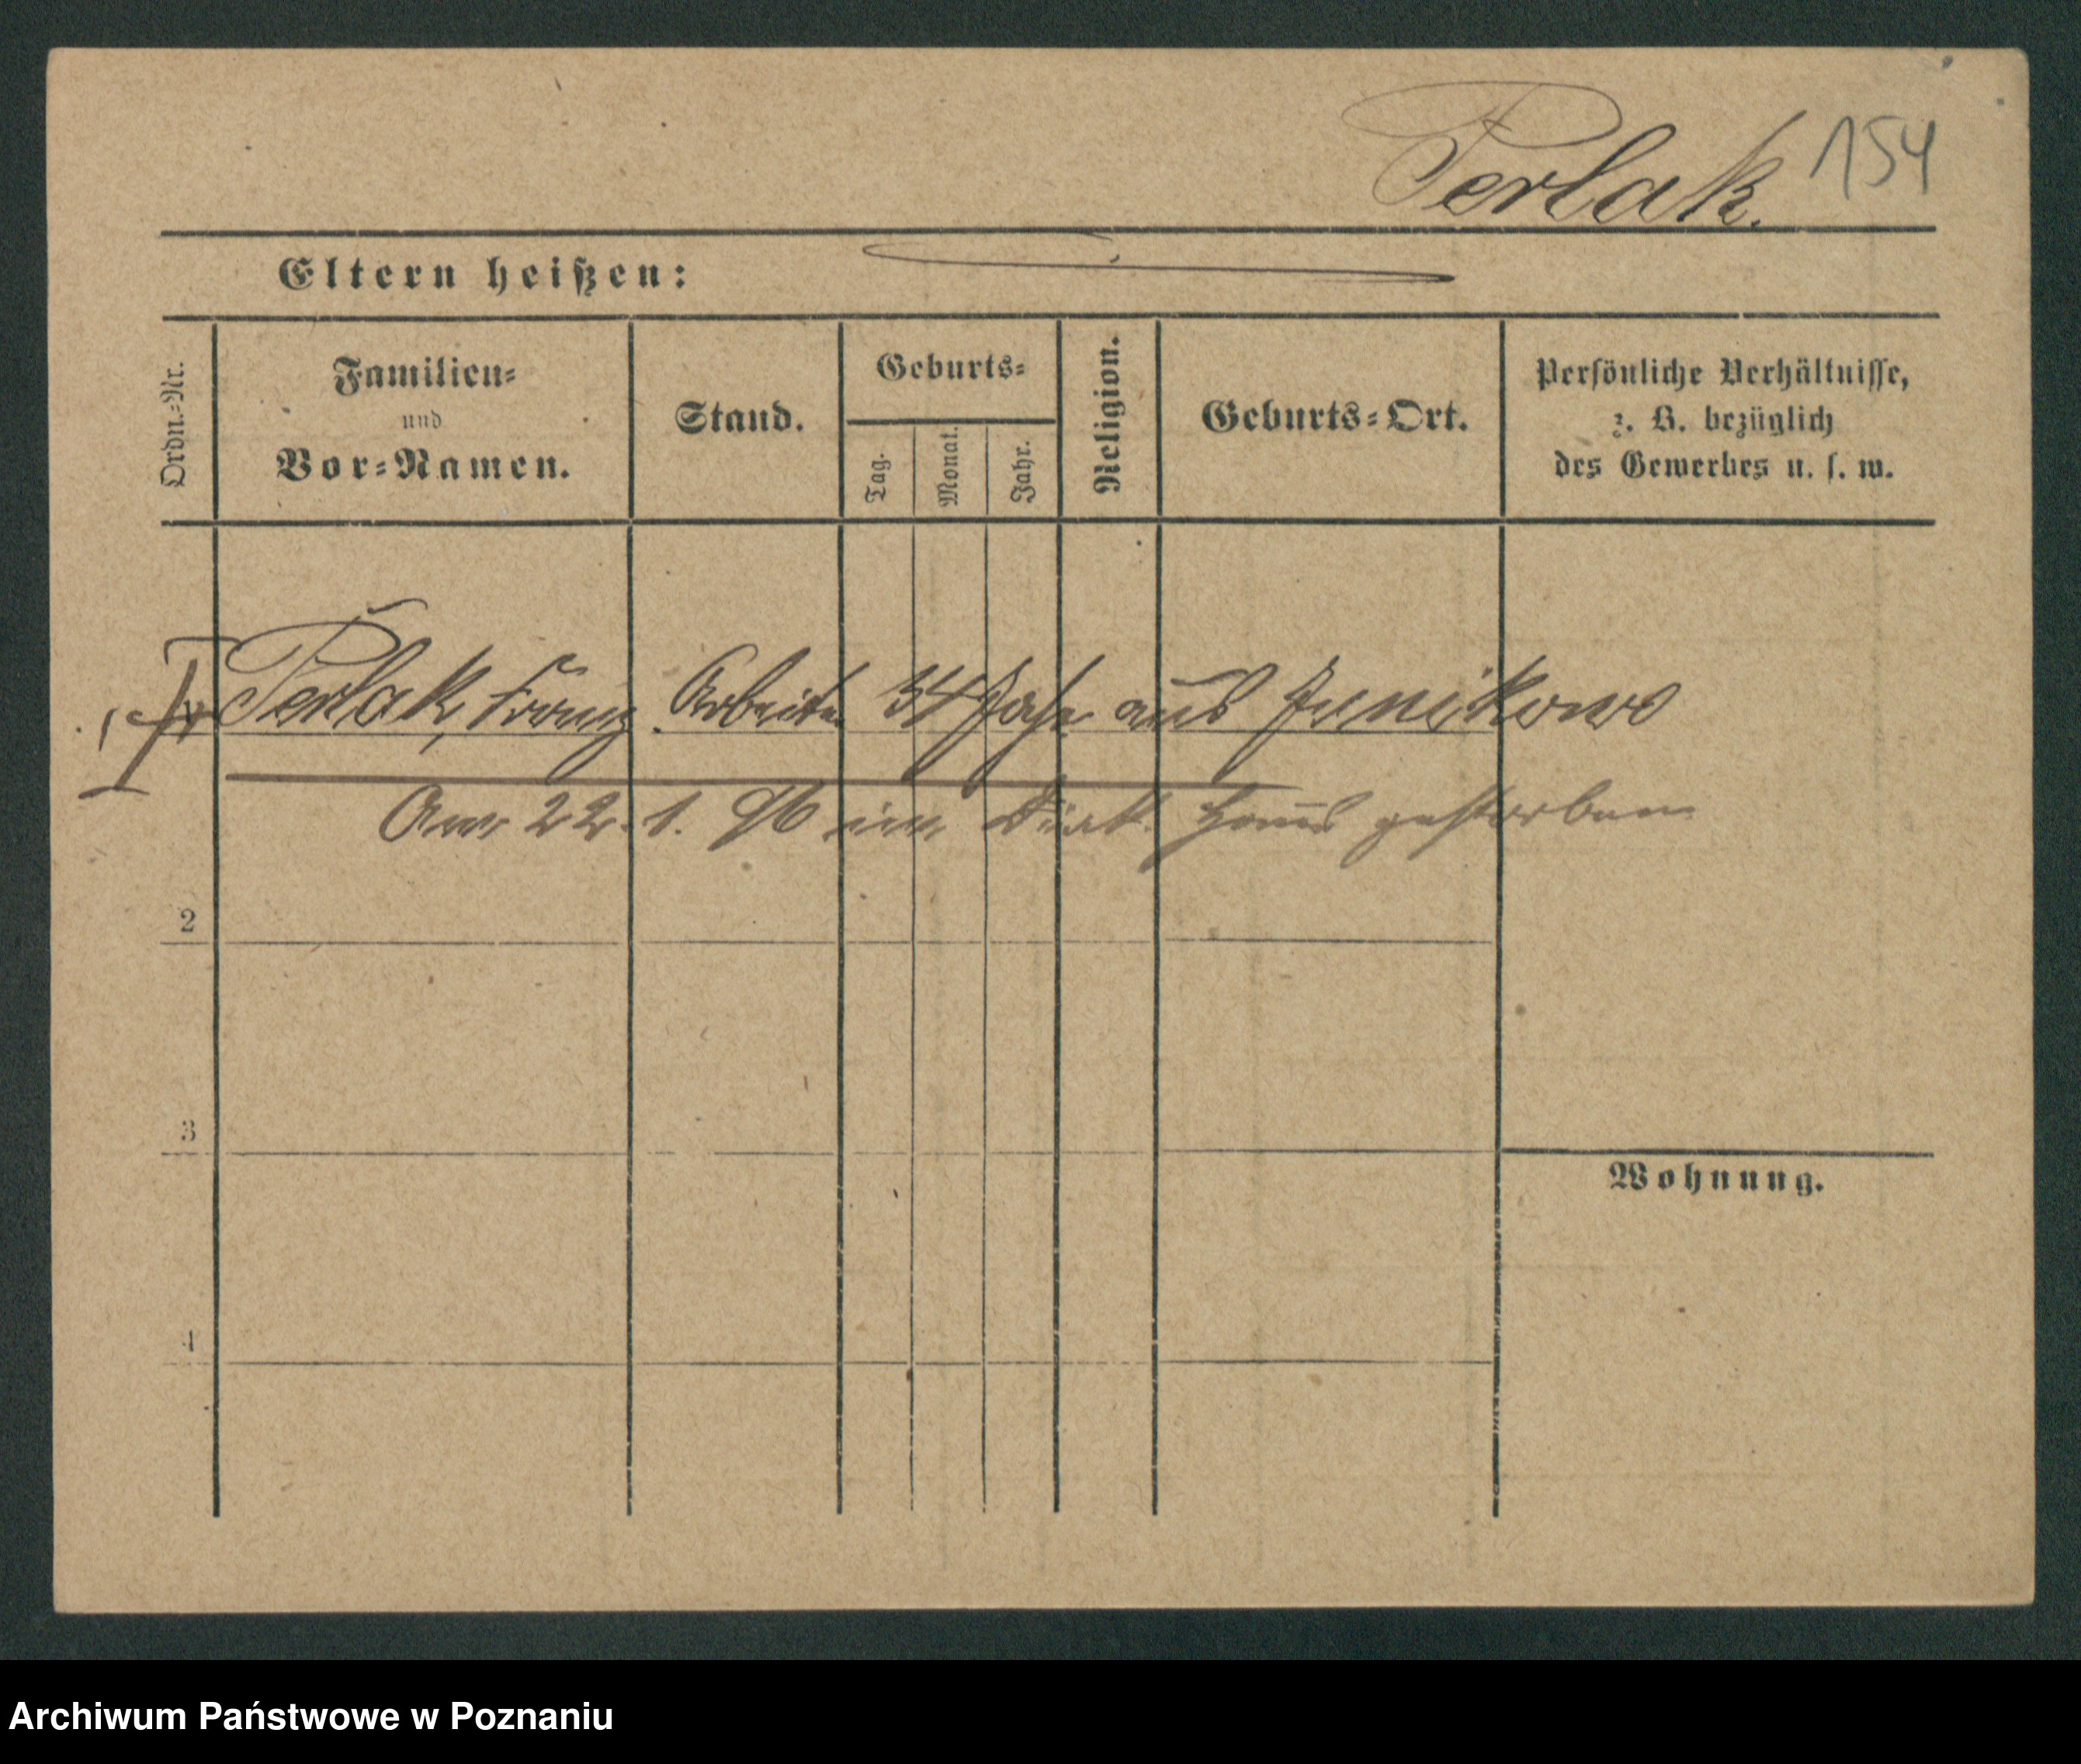 Perlak. 154
Eltern heißen:
Ordn.=Nr.
Familien=
und
Vor=Namen.
Stand.
Geburts=
Tag.
Monat.
Jahr.
Religion.
Geburts=Ort.
Persönliche Verhältnisse,
z. B. bezüglich
des Gewerbes u. s. w.
Perlak, Franz Arbeiter 34 Jahr aus Junikowo
Am 22. 1. 96 im Haus gestorben
2
3
Wohnung.
4
Archiwum Państwowe w Poznaniu